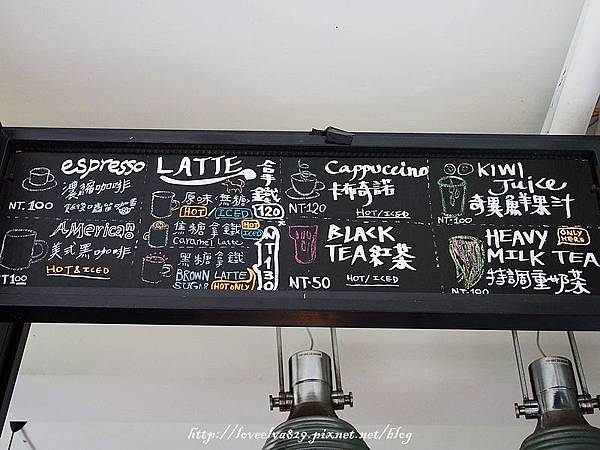 espresso
濃縮咖啡
NT.100
AMERICANO
美式黑咖啡
HOT & ICED
NT100
LATTE
拿鐵
原味·無糖
HOT ICED
120
焦糖拿鐵
HOT ICED
Caramel Latte
黑糖拿鐵
BROWN LATTE
SUGAR HOT ONLY
NT130
Cappuccino
卡布奇諾
NT120
HOT/ICED
BLACK
TEA 紅茶
NT·50
HOT/ICED
KIWI
Juice
奇異鮮果汁
NT·100
HEAVY
ONLY
HERE
MILK TEA
特調重奶茶
NT·100
http://loveelva829.pixnet.net/blog